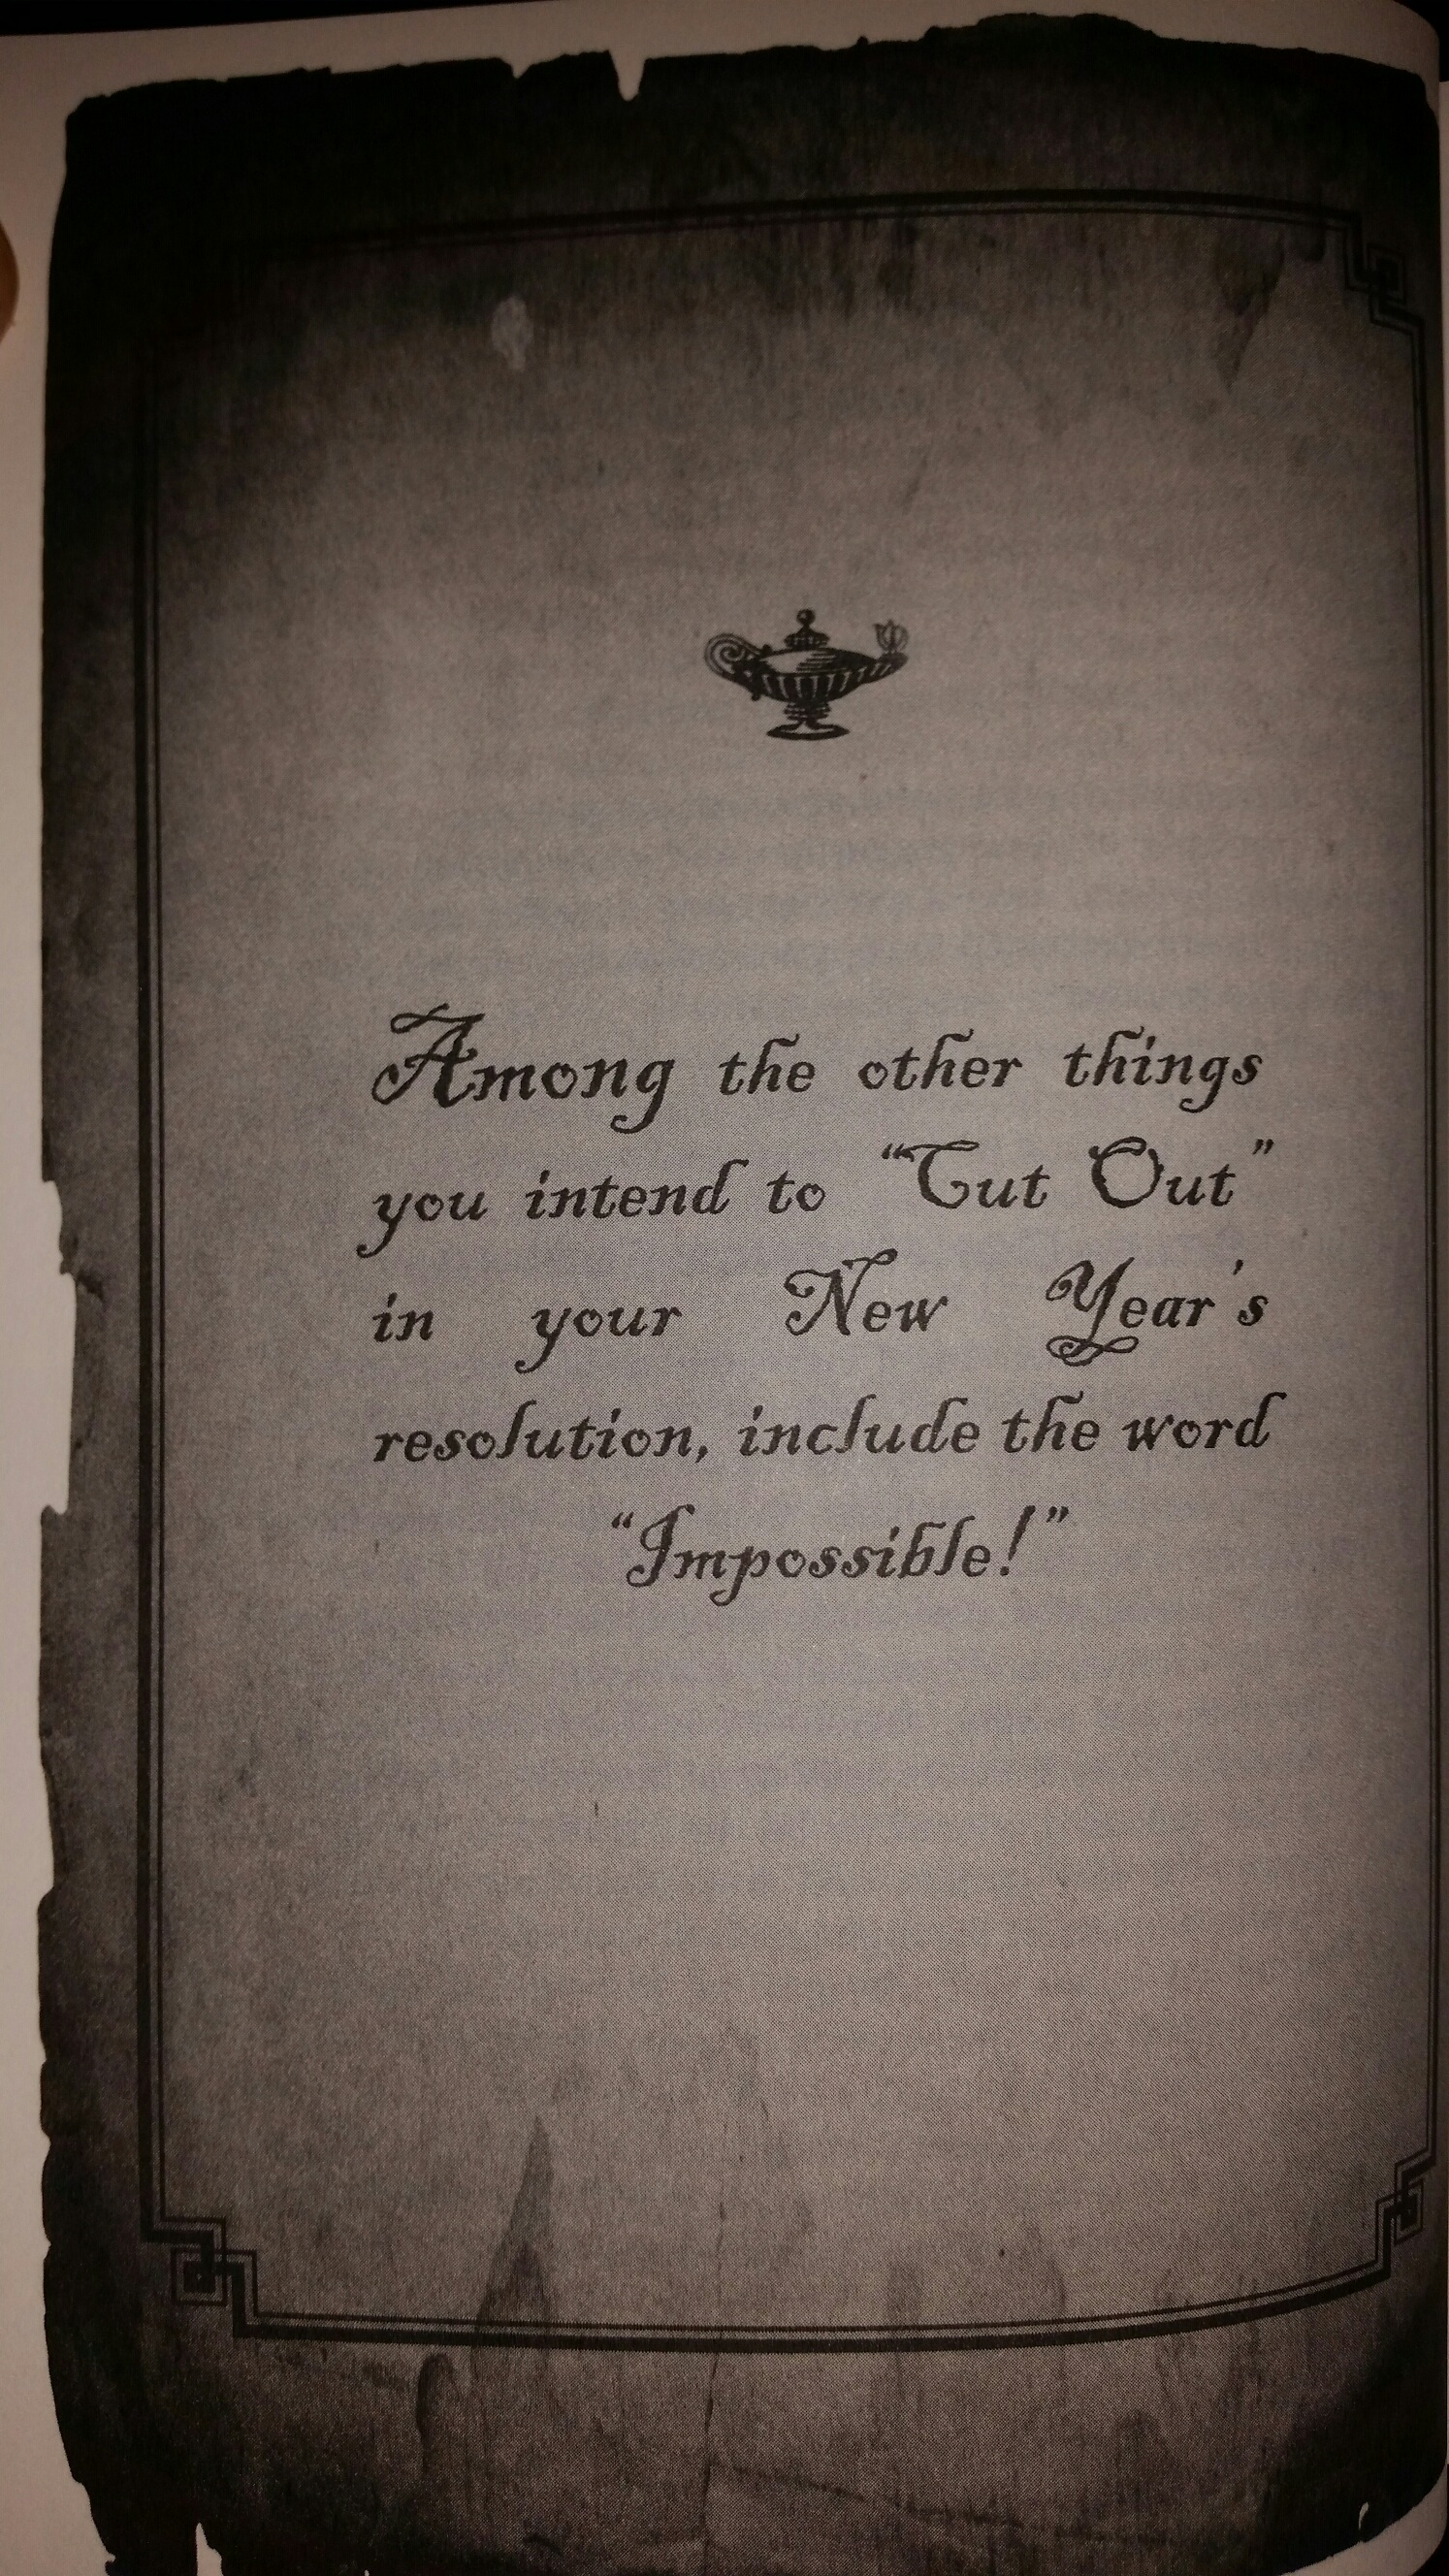 Among the other things
you intend to “Cut Out”
in your New Year's
resolution, include the word
“Impossible!”